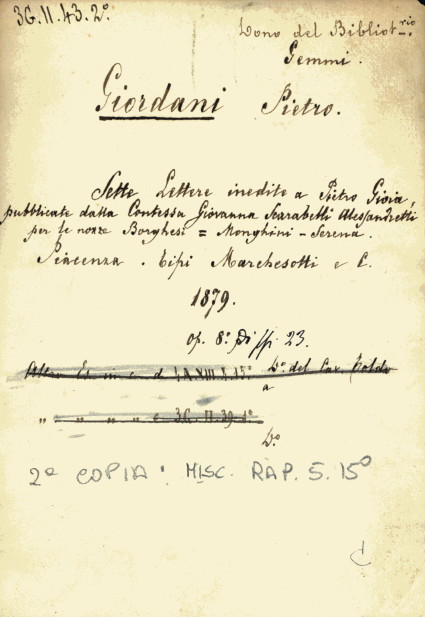 3G.II.43.2º.
Dono del Bibliot-rio
Gemmi.
Giordani Pietro.
Sette Lettere inedite a Pietro Gioia,
pubblicate dalla Contessa Giovanna Scarabelli Alessandretti
per le nozze Borghesi = Monghini - Serena.
Piacenza. Tipi Marchesotti e C.
1879.
op. 8º. di pp. 23.
Altro Es. in c. d 4.A.XIII.I.15º Dº. del Cav.
a
„ „ „ „ e 3G.II.39.4º
Dº.
2ª COPIA: MISC. RAP. 5. 15º